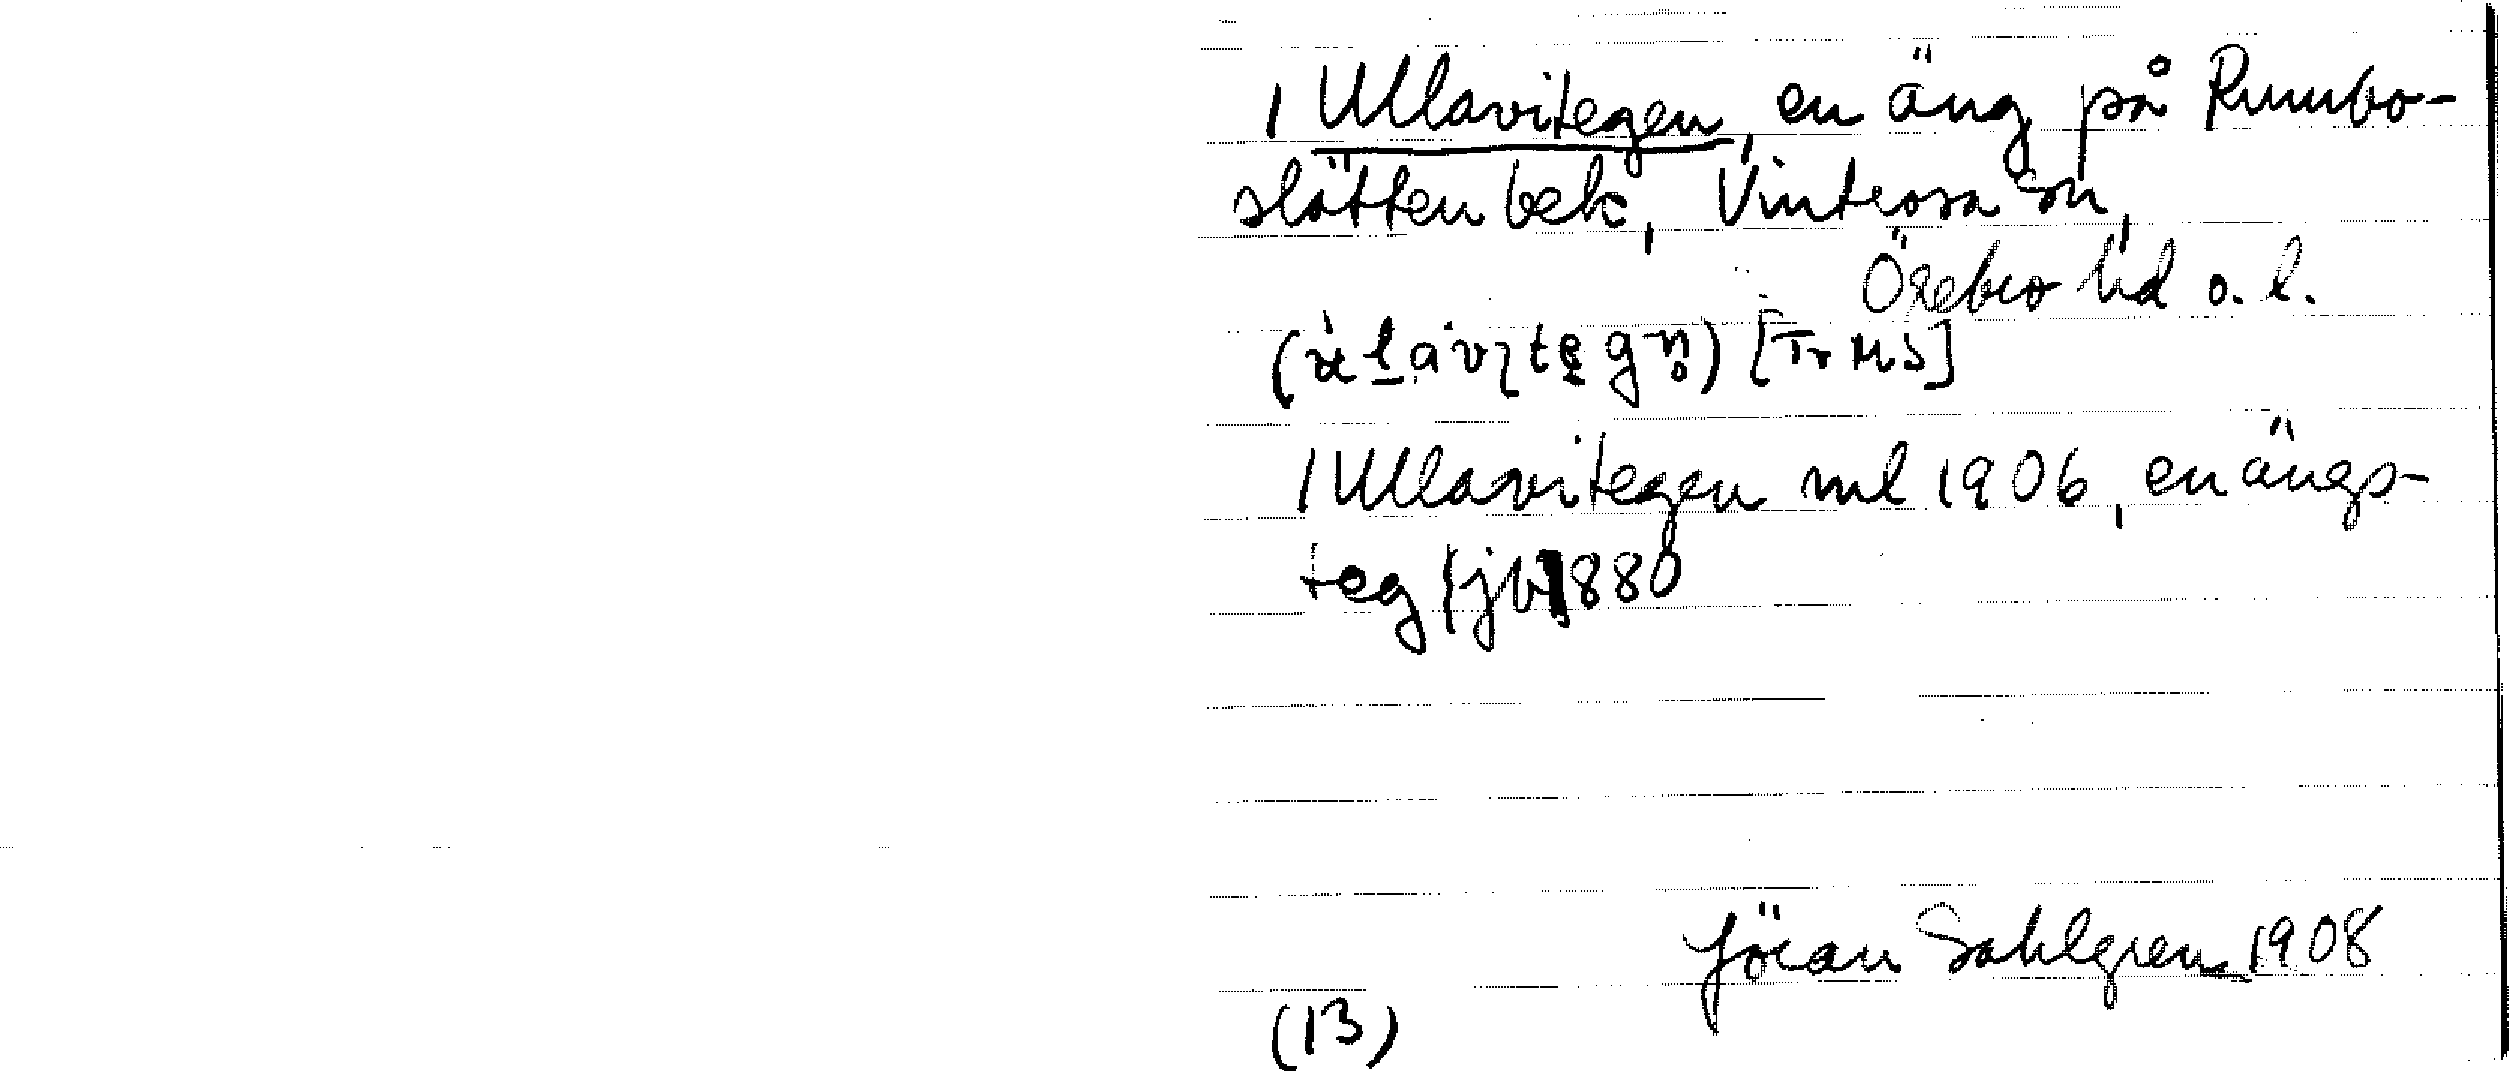 1 Ullavitegen, en äng på Rumbo-
slätten bek, Vintrosa sn,
Örebro hd o. l.
[Tr HS]
1 Ullavitegen ml 1906, en ängs-
teg {jb 1880
Jöran Sahlgren 1908
(13)